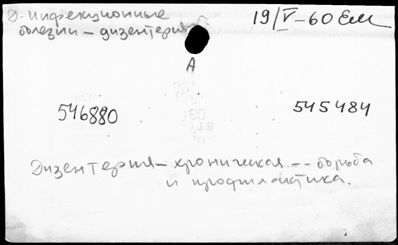 Д-инфекционные 19/V-60 Ем
болезни - дизентерия
А
546880 545484
Дизентерия - хроническая -- борьба
и профилактика.